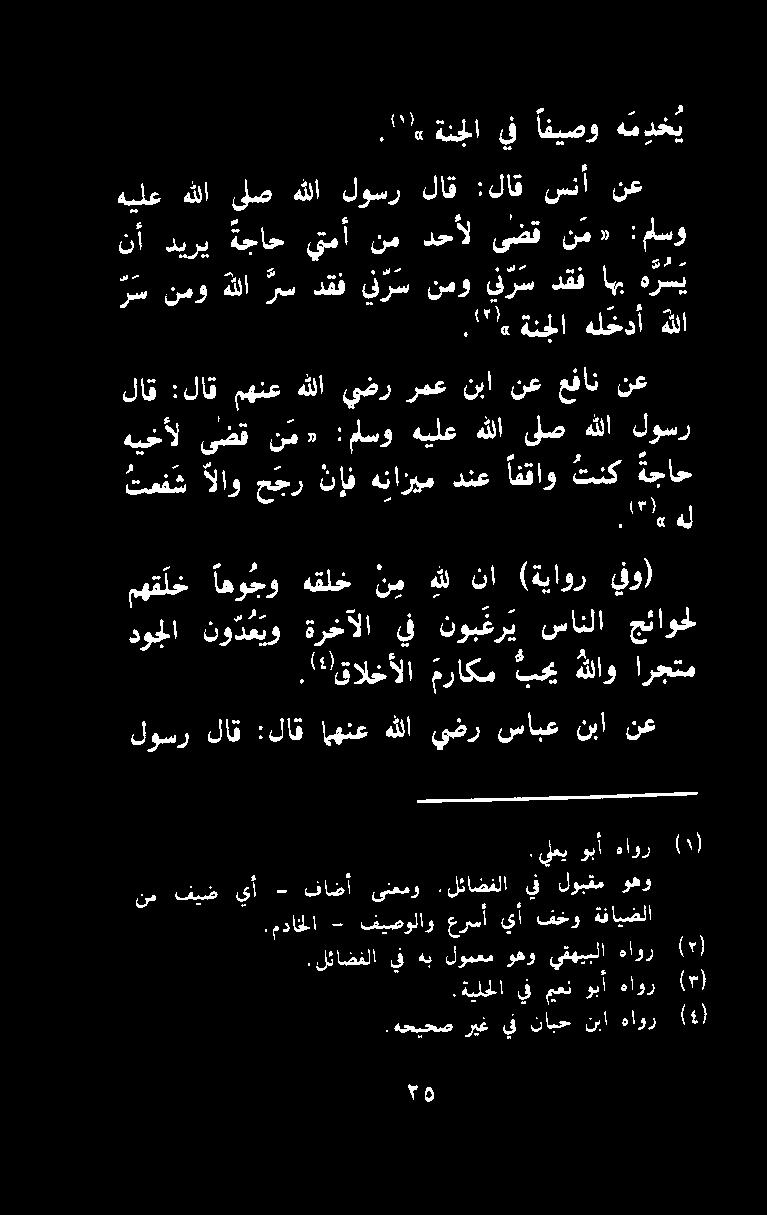 يُخدِمَه وصيفاً في الجنة»(١).
عن أنس قال: قال رسول الله صلى الله عليه
وسلم: «مَن قضٰى لأحد من أمتي حاجةً يريد أن
يَسُرَّه بها فقد سَرّني ومن سَرّني فقد سرَّ اللهَ ومن سَرّ
اللهَ أدخَله الجنة»(٢).
عن نافع عن ابن عمر رضي الله عنهم قال: قال
رسول الله صلى الله عليه وسلم: «مَن قضٰى لأخيه
حاجةً كنتُ واقفاً عند ميزانِه فإنْ رجَح والاّ شَفعتُ
له»(٣).
(وفي رواية) ان للهِ مِنْ خلقه وجُوهاً خلَقهم
لحوائج الناس يَرغَبون في الآخرة ويَعُدّون الجود
متجرا واللهُ يحبُّ مكارمَ الأخلاق(٤).
عن ابن عباس رضي الله عنهما قال: قال رسول
(١) رواه أبو يعلي.
وهو مقبول في الفضائل. ومعنى أضاف - أي ضيف من
الضيافة وخف أي أسرع والوصيف - الخادم.
(٢) رواه البيهقي وهو معمول به في الفضائل.
(٣) رواه أبو نعيم في الحلية.
(٤) رواه ابن حبان في غير صحيحه.
٢٥